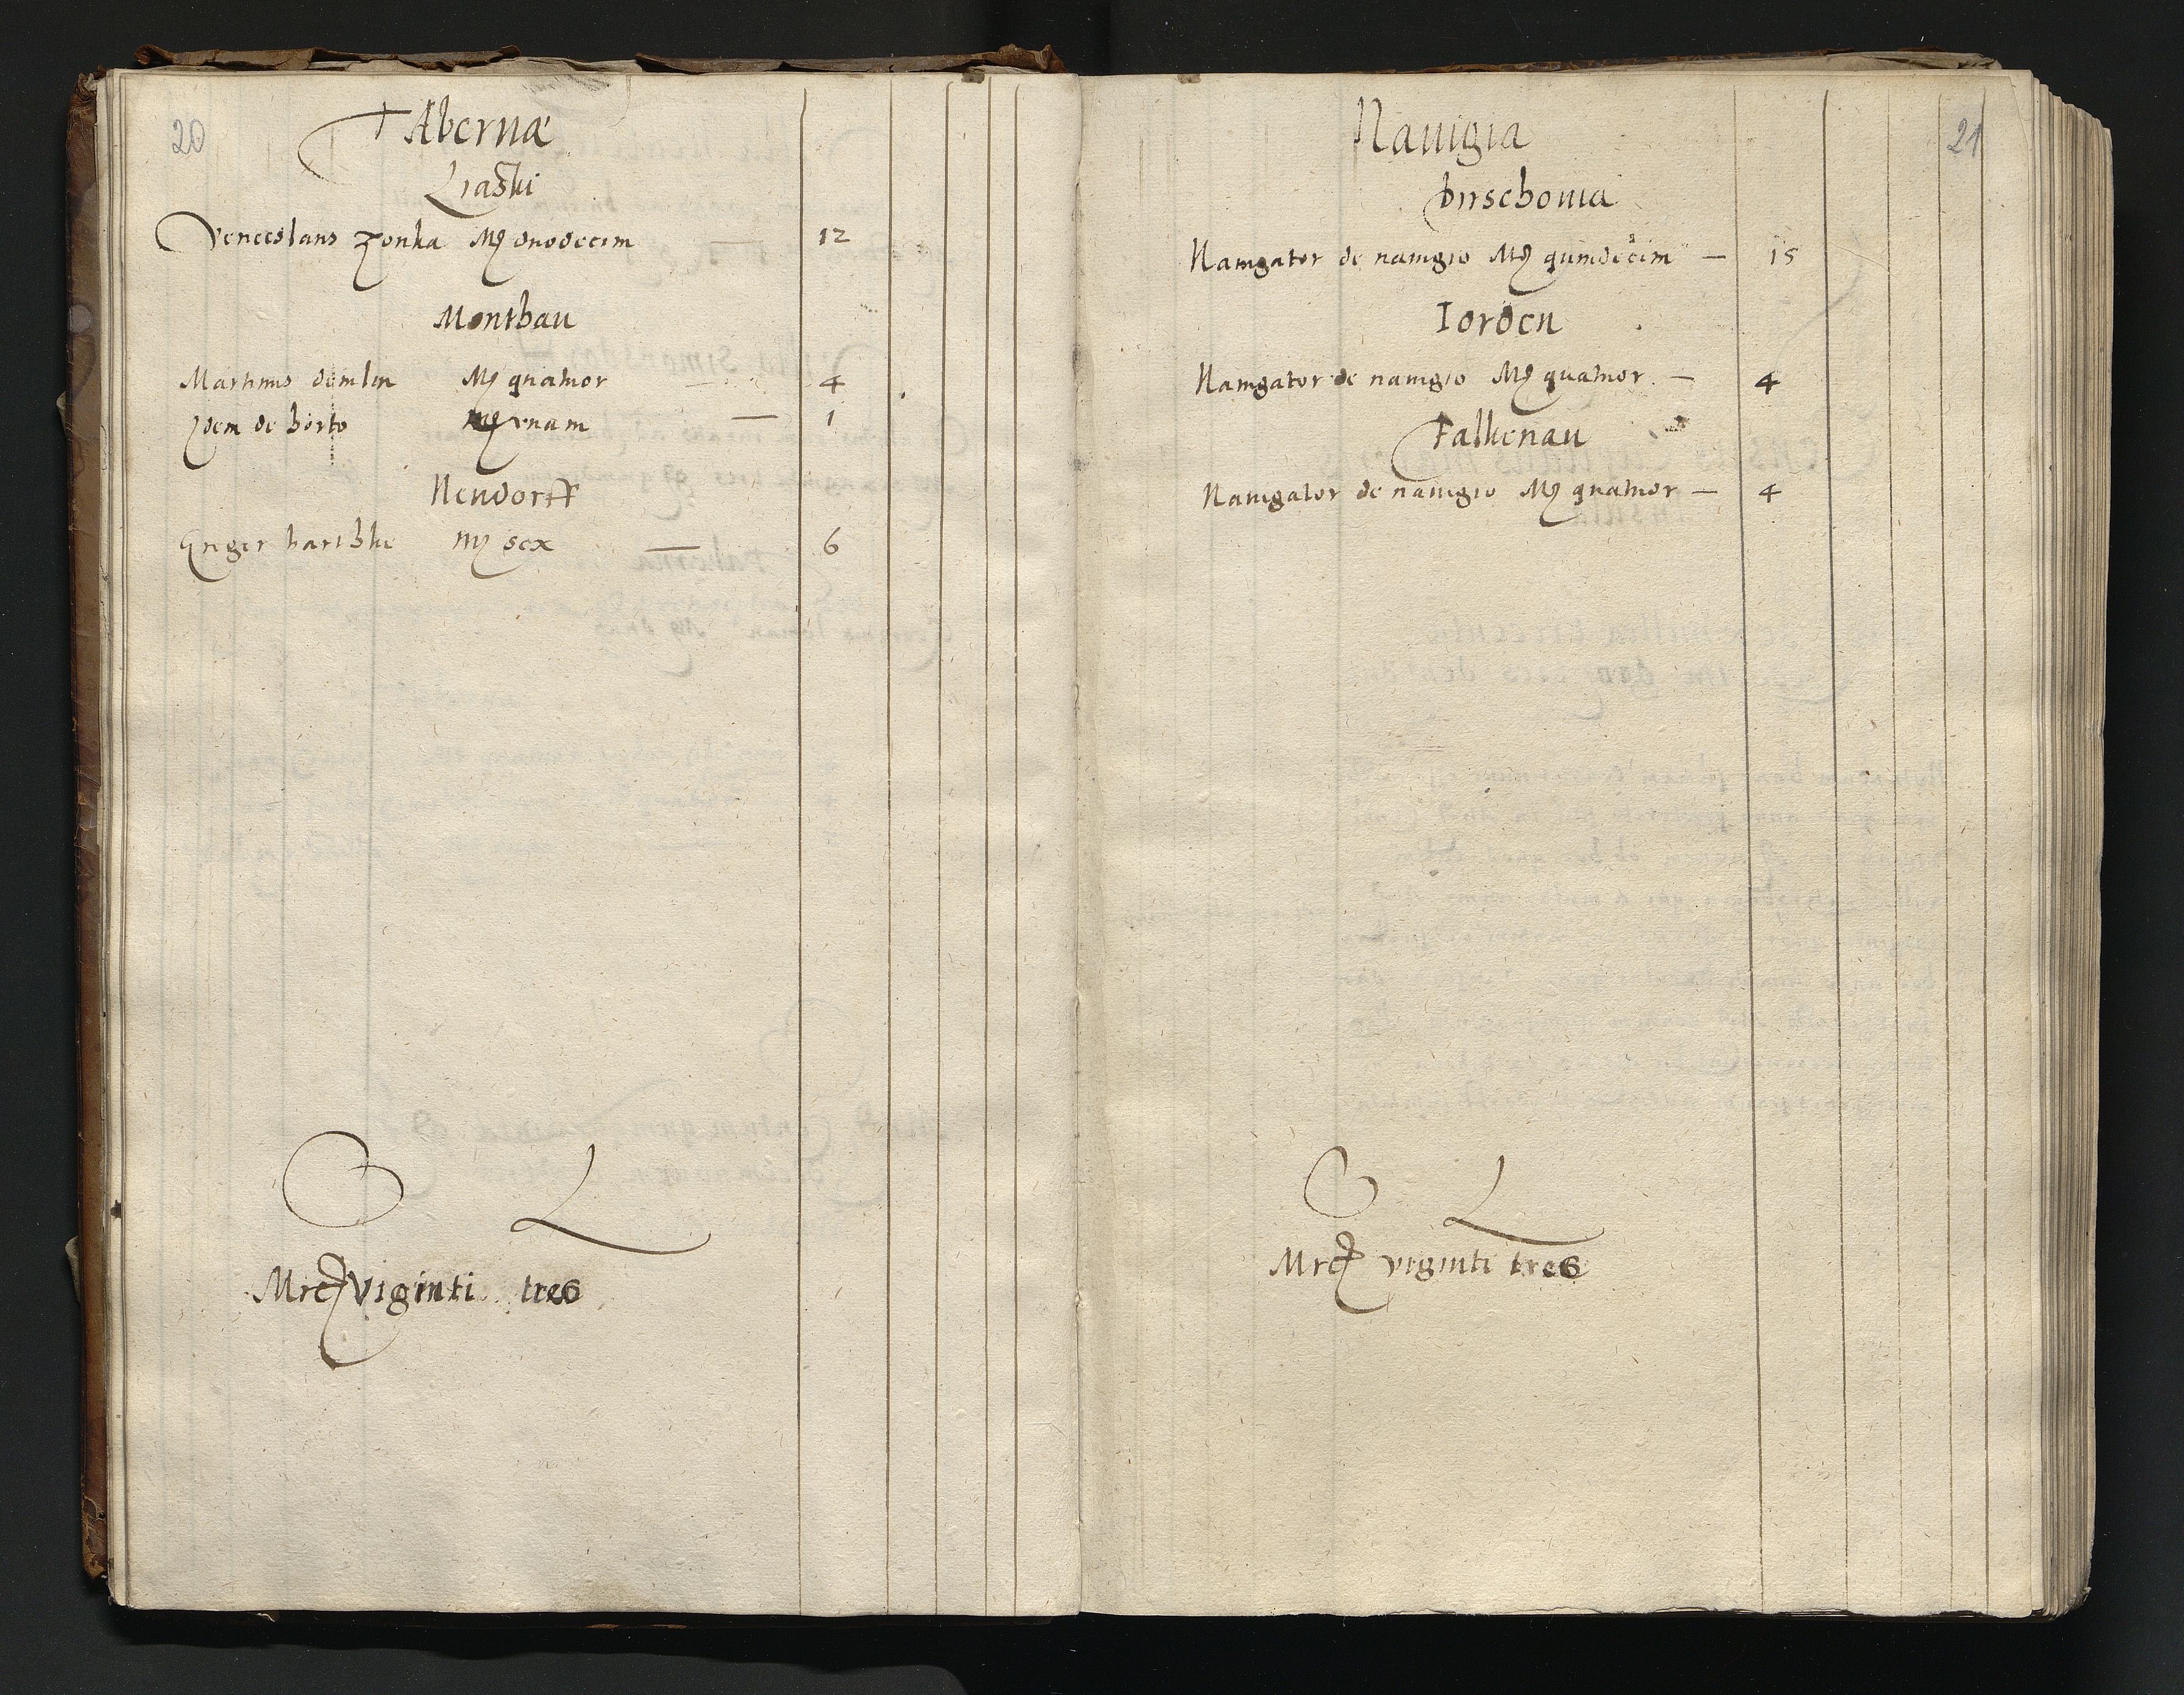 20
Tabernæ
Liaski
Venceslaus Zonka Mɋ duodecim 12
Monthau
Martinus demlin Mɋ quatuor — 4
Idem de horto Mɋ vnam — 1
Neudorff
Greger hartzke Mɋ sex — 6
Mrcɋ Viginti tres
21
Nauigia
Dirschouia
Nauigator de nauigio Mɋ quindecim — 15
Iorden
Nauigator de nauigio Mɋ quatuor — 4
Falkenau
Nauigator de nauigio Mɋ quatuor — 4
Mrcɋ viginti tres